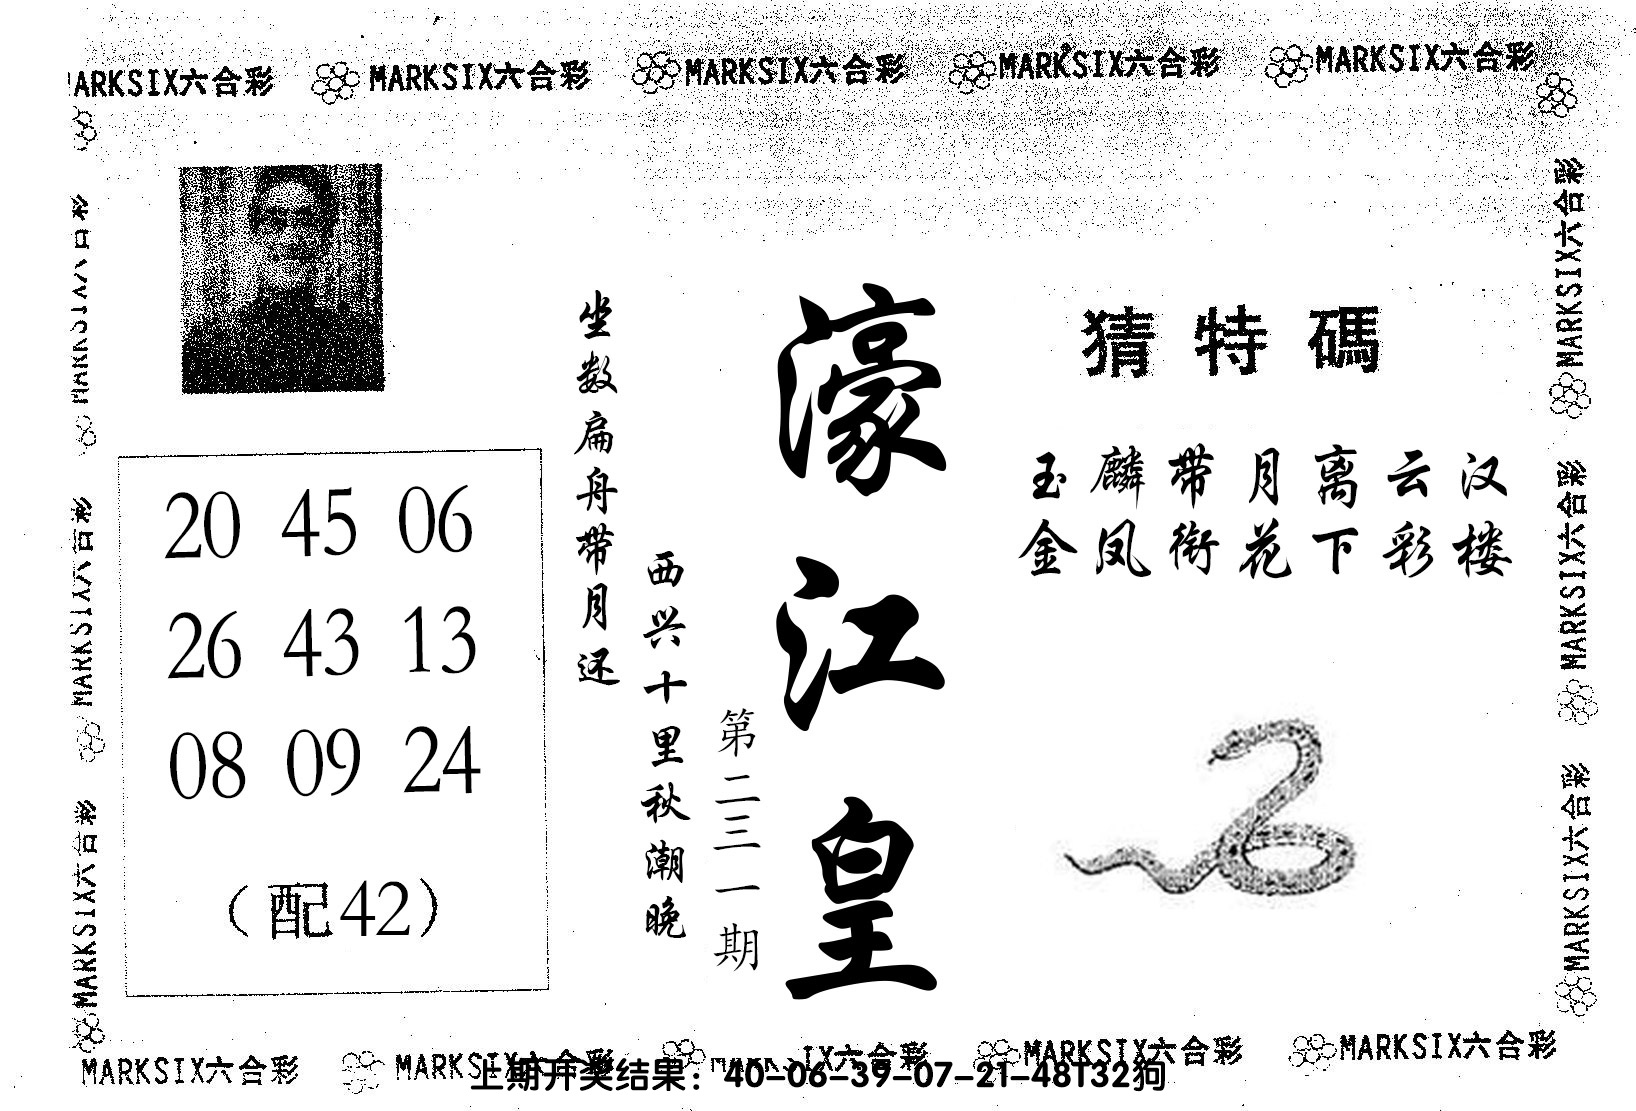 MARKSIX六合彩 MARKSIX六合彩 MARKSIX六合彩 MARKSIX六合彩 MARKSIX六合彩
猜特碼
玉麟带月离云汉
金凤衔花下彩楼
濠江皇
第二三一期
西兴十里秋潮晚
坐数扁舟带月还
20 45 06
26 43 13
08 09 24
（配42）
MARKSIX六合彩
MARKSIX六合彩
MARKSIX六合彩
MARKSIX六合彩
MARKSIX六合彩
MARKSIX六合彩
MARKSIX六合彩 MARKSIX六合彩 MARKSIX六合彩 MARKSIX六合彩 MARKSIX六合彩
上期开奖结果：40-06-39-07-21-48T32狗